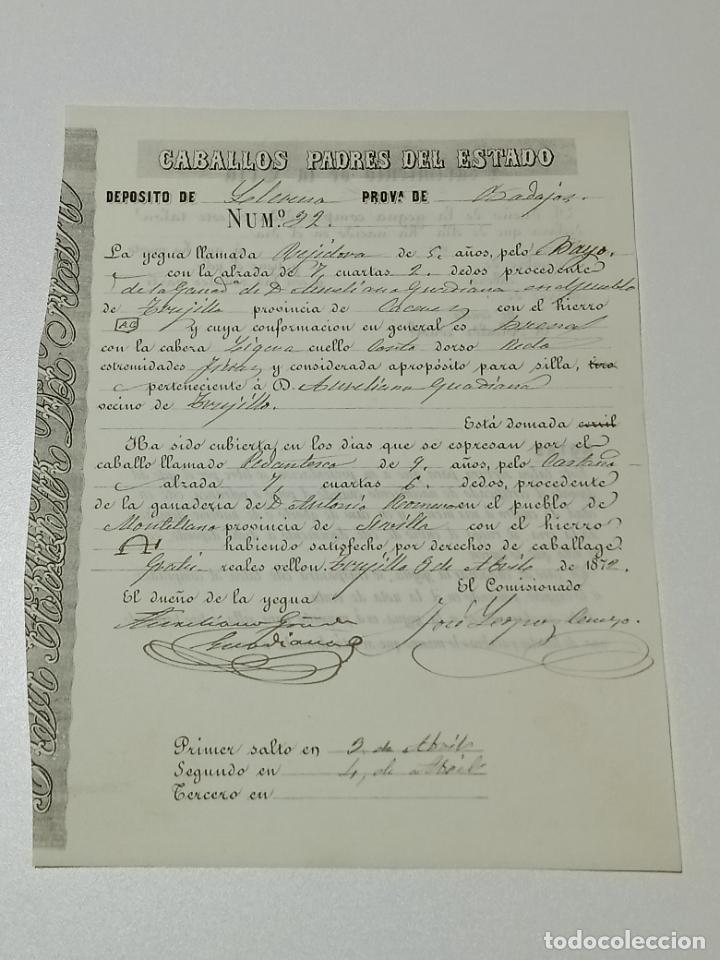 CABALLOS PADRES DEL ESTADO
DEPOSITO DE Llerena PROVª DE Badajoz.
NUMº 32
La yegua llamada Vejidora de 5 años, pelo Bayo,
con la alzada de 7 cuartas 2 dedos procedente
de la Ganadª de D. Aureliano Guadiana en el pueblo
de Trujillo provincia de Caceres con el hierro
AG y cuya conformacion en general es Buena
con la cabeza Ligera cuello Corto dorso Recto
estremidades y considerada apropósito para silla, tiro
perteneciente á D. Aureliano Guadiana
vecino de Trujillo.
Está domada cerril
Ha sido cubierta en los dias que se espresan por el
caballo llamado Pedantesco de 9 años, pelo Castaño
alzada 7 cuartas 6 dedos, procedente
de la ganadería de D Antonio Romero en el pueblo de
Montellano provincia de Sevilla con el hierro
habiendo satisfecho por derechos de caballage
Gratis reales vellon. Trujillo 3 de Abril de 1872.
El dueño de la yegua El Comisionado
Aureliano Gª de Guadiana José Lopez
Primer salto en 3 de Abril
Segundo en 4 de Abril
Tercero en
todocoleccion